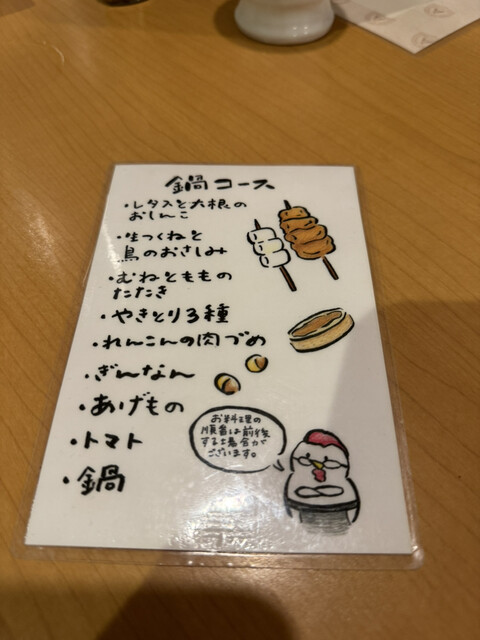 鍋コース
・レタスと大根の
おしんこ
・生つくねと
鳥のおさしみ
・むねともものの
たたき
・やきとり3種
・れんこんの肉づめ
・ぎんなん
・あげもの
・トマト
・鍋
お料理の
順番は前後
する場合が
ございます。